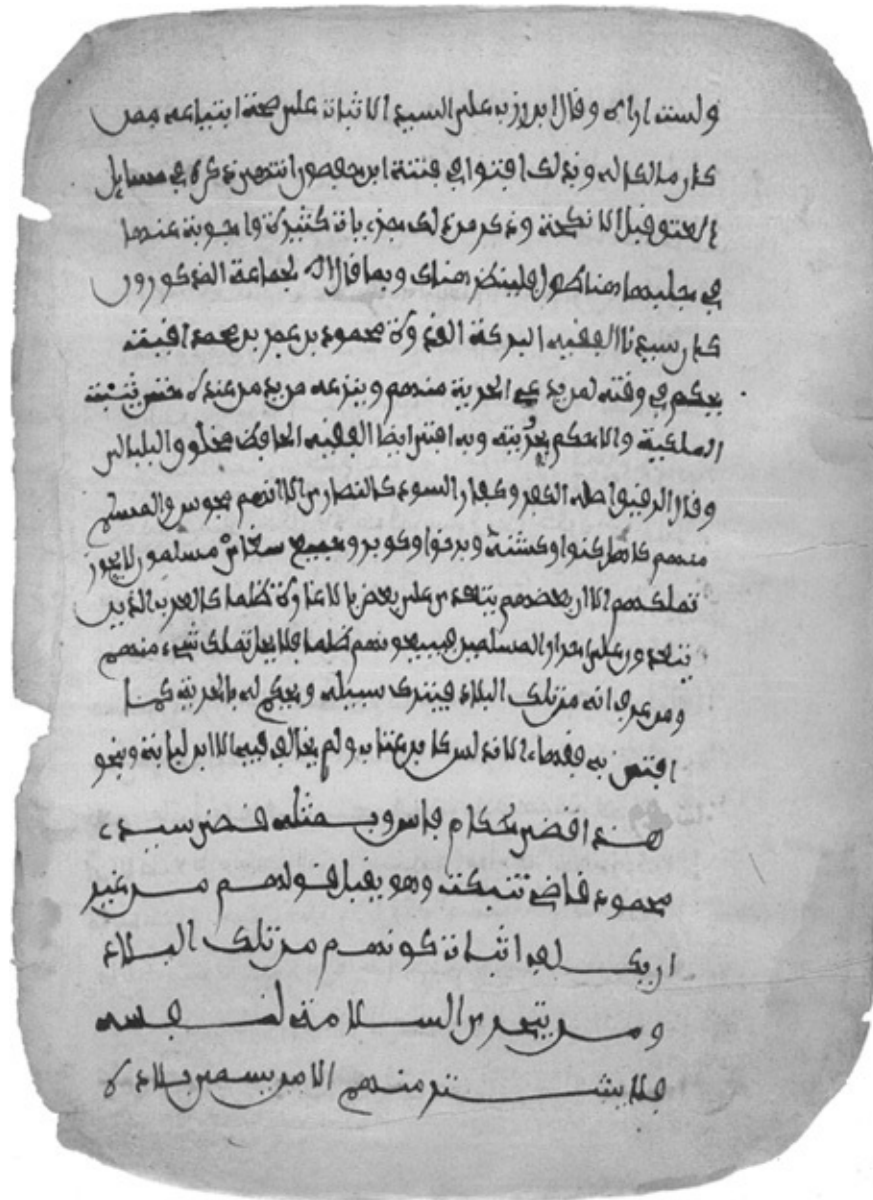 ولست اراه وقال ابن رزب على السيد الاثبات على صحة ابتياعه ممن
كان مالكا له وبذلك افتوا في فتنة ابن حفصون انتهى ذكره في مسايل
العتق قبل الانكحة وذكر من ذلك جزييات كثيرة واجوبة عندها
في جلبها هنا طول فلينظر هناك وبما قال الجماعة المذكورون
كان سيدنا الفقيه البركة القدوة محمود بن عمر بن محمد اقيت
يحكم في وقته لمن يدعي الحرية منهم وينزعه من يد من عنده حتى يثبت
الملكية والا حكم بحريته وبه افتى ايضا الفقيه الحافظ مخلوف البلبالي
وقال الرقيق اصله الكفر وكفار السود كالنصارى الا انهم مجوس والمسلم
منهم كاهل كنوا وكشنة وبرنوا وكوبر وجميع سغاى مسلمون لا يجوز
تملكهم الا ان بعضهم يتعدى على بعض بالاغارة ظلما كالعرب الذين
يتعدون على احرار المسلمين فيبيعونهم ظلما فلا يحل تملك شيء منهم
ومن عرف انه من تلك البلاد فيترك سبيله ويحكم له بالحرية كما
افتى به فقهاء الاندلس كابن عتاب ولم يخالف فيها الا ابن لبابة وبنحو
هذا افضى حكام فاس وبمثله قضى سيدي
محمود قاضي تنبكت وهو يقبل قولهم من غير
ان يكلفه اثبات كونهم من تلك البلاد
ومن يتحرى السلامة لنفسه
فلا يشتر منهم الا من يسمى بلاده